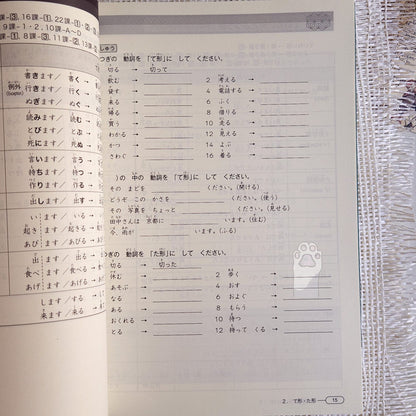 課-③, 16課-①, 22課-①・②
9課-1・2, 10課-A~D
課-①, 8課-③, 11課-②, 13課
例外
書きます／ 書く →
行きます／ 行く →
ぬぎます／ ぬぐ →
読みます／ 読む →
とびます／ とぶ →
死にます／ 死ぬ →
言います／ 言う →
待ちます／ 待つ →
作ります／ 作る →
出します／ 出す →
います／ いる →
起きます／ 起きる →
あびます／ あびる →
出ます／ 出る →
食べます／ 食べる →
あげます／ あげる →
します／ する →
来ます／ 来る →
しゅう
つぎの 動詞を 「て形」に して ください。
切る → 切って
飲む → 2 考える →
戻す → 4 電話する →
来る → 6 ふく →
帰る → 8 借りる →
買う → 10 走る →
わかる → 12 見せる →
もつ → 14 よぶ →
さわぐ → 16 着る →
）の 中の 動詞を 「て形」に して ください。
その まどを ください。（開ける）
どうぞ この かさを ください。（使う）
その 写真を ちょっと ください。（見せる）
田中さんは 京都に います。（住む）
今、雨が います。（ふる）
つぎの 動詞を 「た形」に して ください。
切る → 切った
休む → 2 歩く →
あそぶ → 4 おす →
なる → 6 およぐ →
ある → 8 もらう →
おくれる → 10 待つ →
とる → 12 持って くる →
2. て形・た形 15